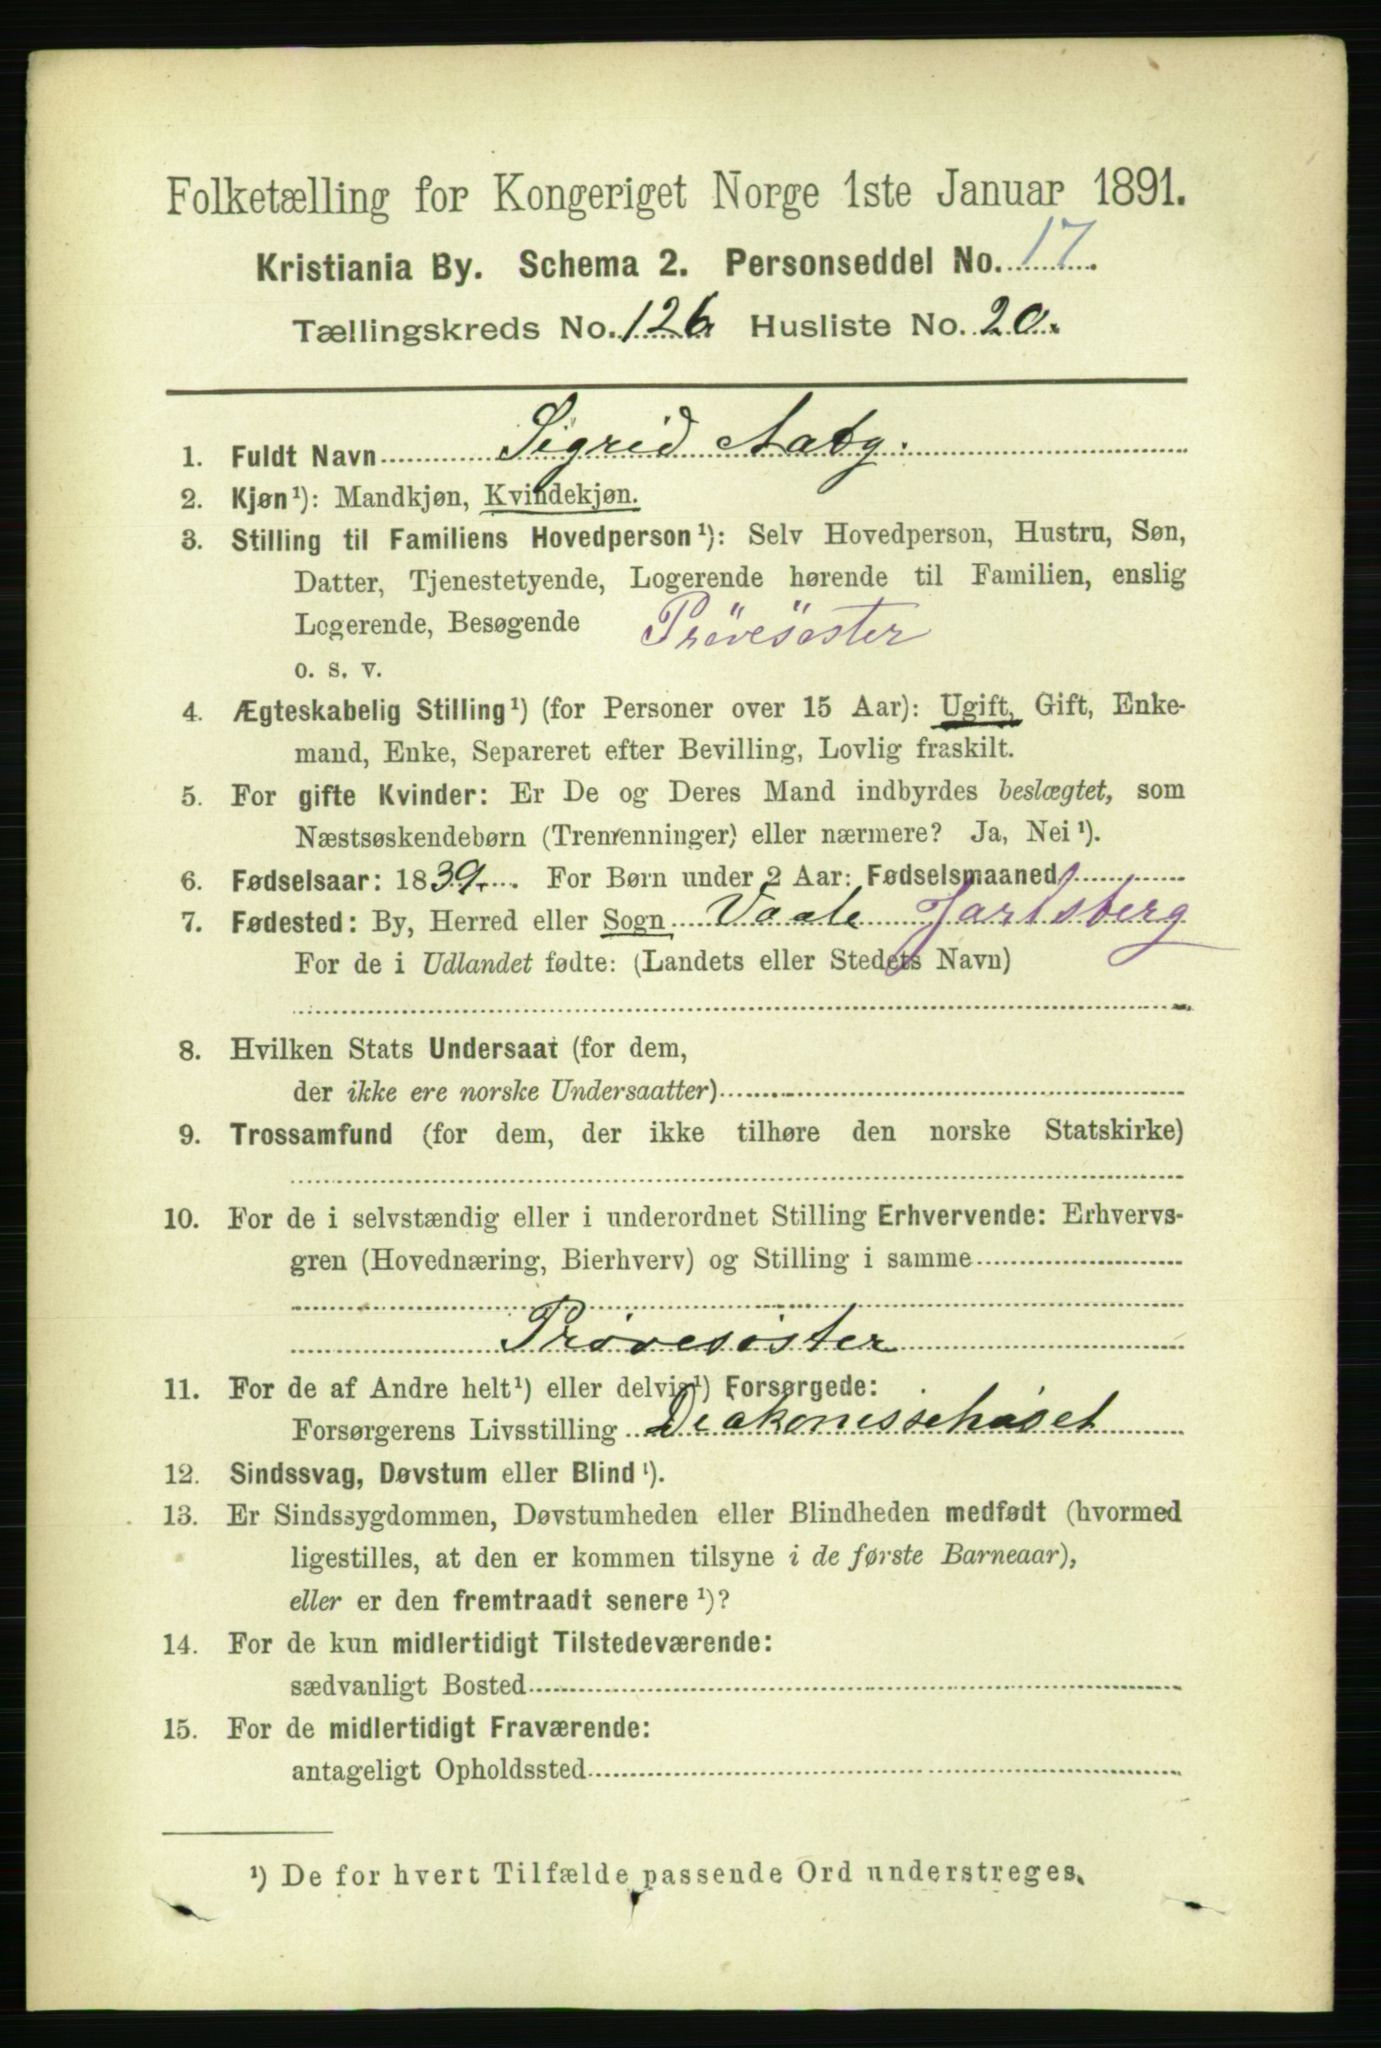 Folketælling for Kongeriget Norge 1ste Januar 1891.
Kristiania By. Schema 2. Personseddel No. 17.
Tællingskreds No. 126 Husliste No. 20.
1. Fuldt Navn Sigrid Aaby.
2. Kjøn¹): Mandkjøn, Kvindekjøn.
3. Stilling til Familiens Hovedperson¹): Selv Hovedperson, Hustru, Søn,
Datter, Tjenestetyende, Logerende hørende til Familien, enslig
Logerende, Besøgende Prövesöster
o. s. v.
4. Ægteskabelig Stilling¹) (for Personer over 15 Aar): Ugift, Gift, Enke-
mand, Enke, Separeret efter Bevilling, Lovlig fraskilt.
5. For gifte Kvinder: Er De og Deres Mand indbyrdes beslægtet, som
Næstsøskendebørn (Tremenninger) eller nærmere? Ja, Nei¹).
6. Fødselsaar: 1839. For Børn under 2 Aar: Fødselsmaaned
7. Fødested: By, Herred eller Sogn Vaale Jarlsberg
For de i Udlandet fødte: (Landets eller Stedets Navn)
8. Hvilken Stats Undersaat (for dem,
der ikke ere norske Undersaatter)
9. Trossamfund (for dem, der ikke tilhøre den norske Statskirke)
10. For de i selvstændig eller i underordnet Stilling Erhvervende: Erhvervs-
gren (Hovednæring, Bierhverv) og Stilling i samme
Prøvesøster
11. For de af Andre helt¹) eller delvis¹) Forsørgede:
Forsørgerens Livsstilling Diakonissehuset
12. Sindssvag, Døvstum eller Blind¹).
13. Er Sindssygdommen, Døvstumheden eller Blindheden medfødt (hvormed
ligestilles, at den er kommen tilsyne i de første Barneaar),
eller er den fremtraadt senere¹)?
14. For de kun midlertidigt Tilstedeværende:
sædvanligt Bosted
15. For de midlertidigt Fraværende:
antageligt Opholdssted
¹) De for hvert Tilfælde passende Ord understreges.